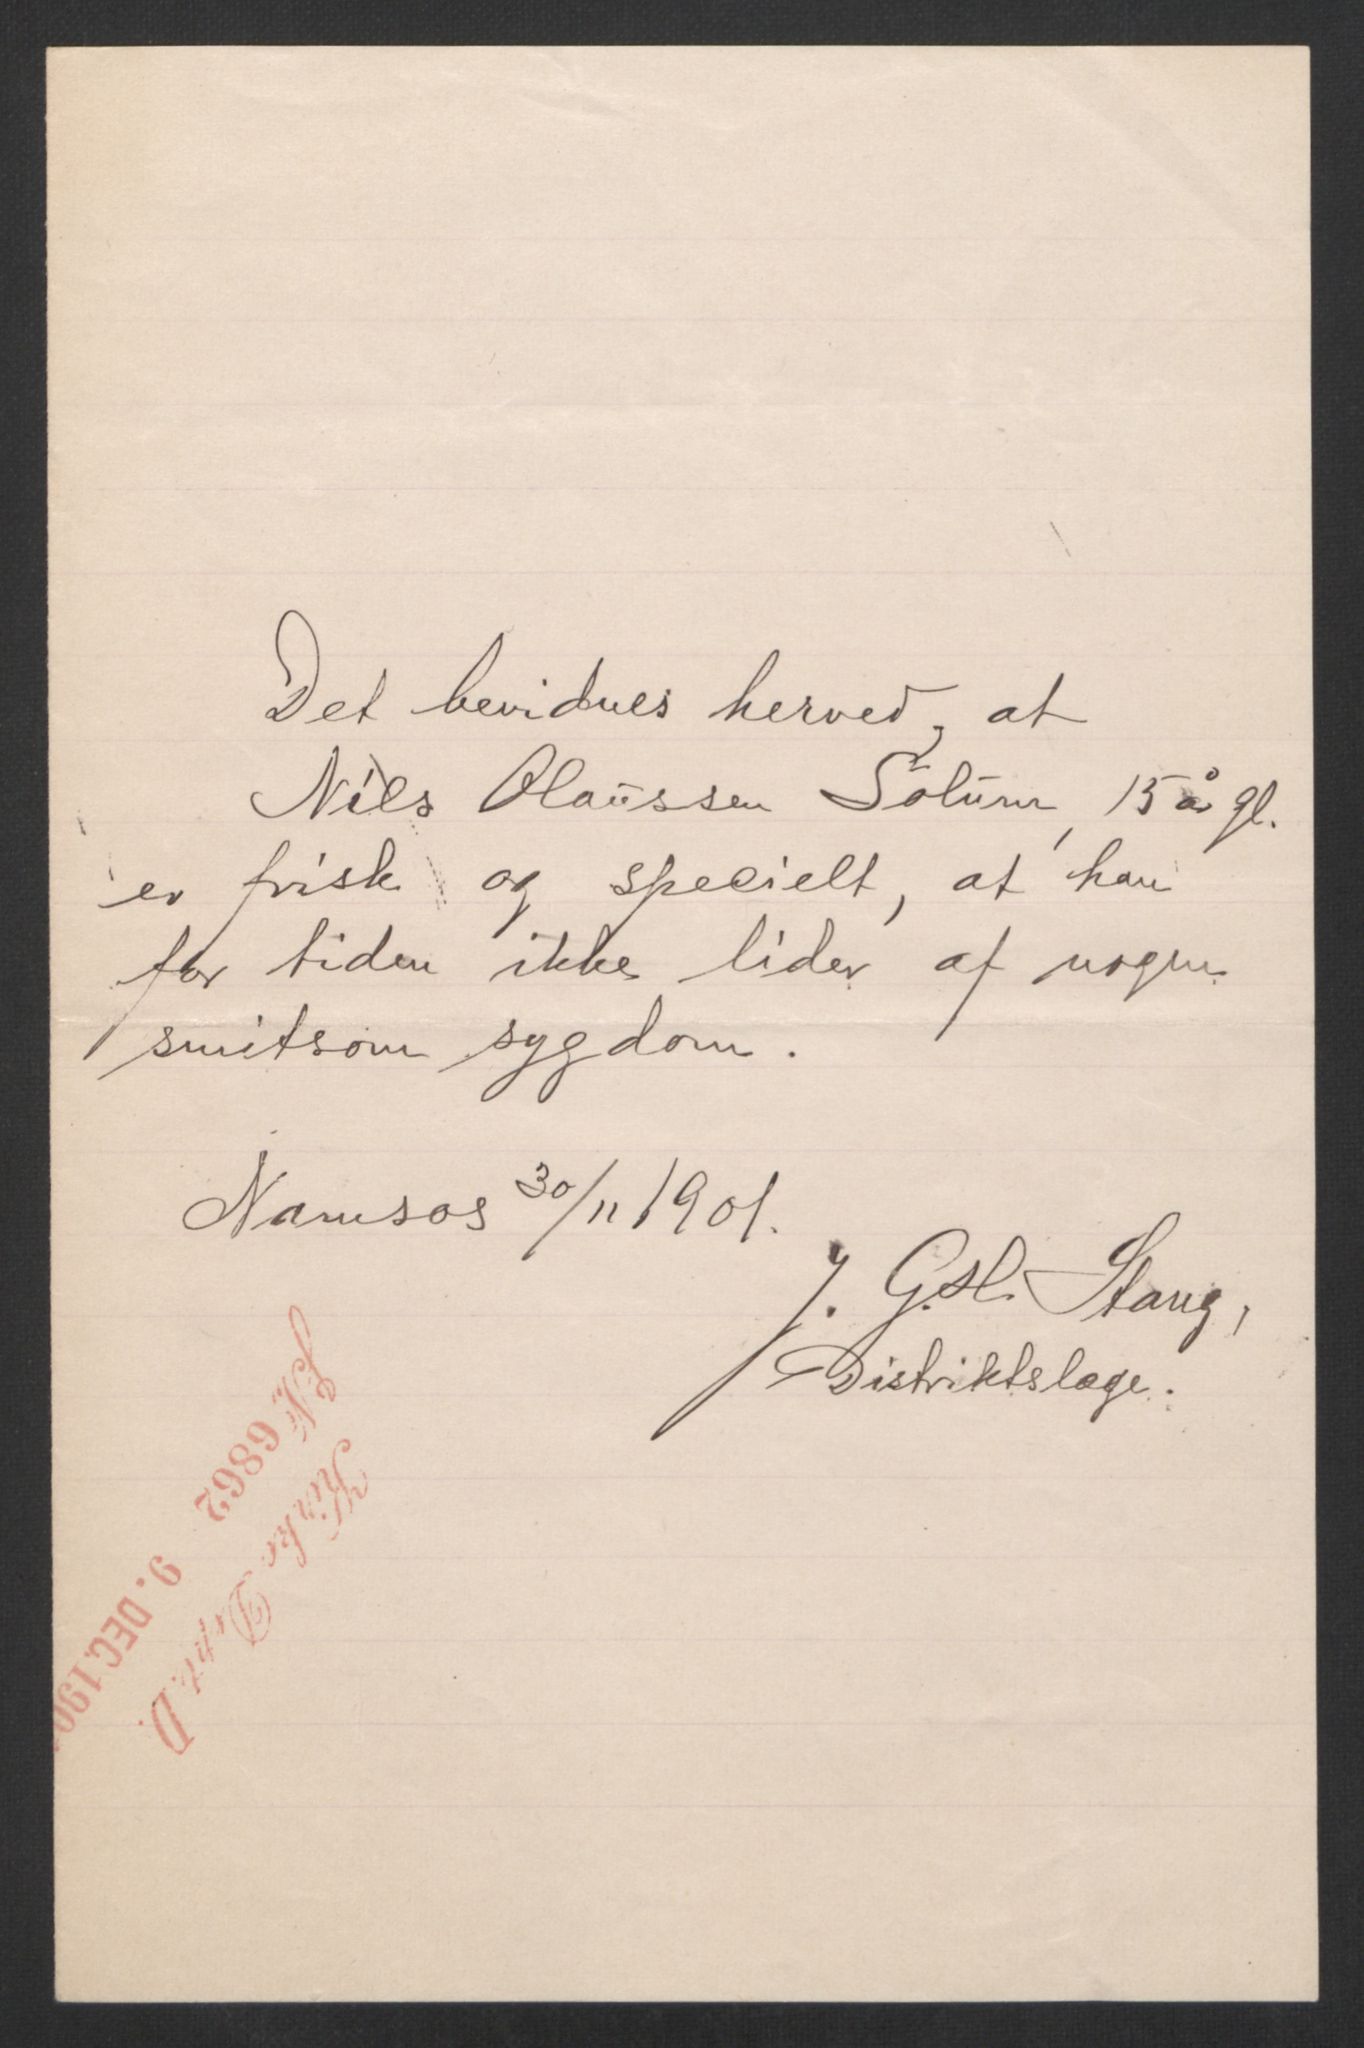 Det bevidnes herved, at
Nils Olaüssen Solüm, 15 år gl.
er frisk og specielt, at han
for tiden ikke lider af nogen
smitsom sygdom.
Namsos 30/11 1901.
J. G. Sl. Stang,
Distriktslæge.
J.Nr. 6862
Kirke Dept. D.
9. DEC. 190